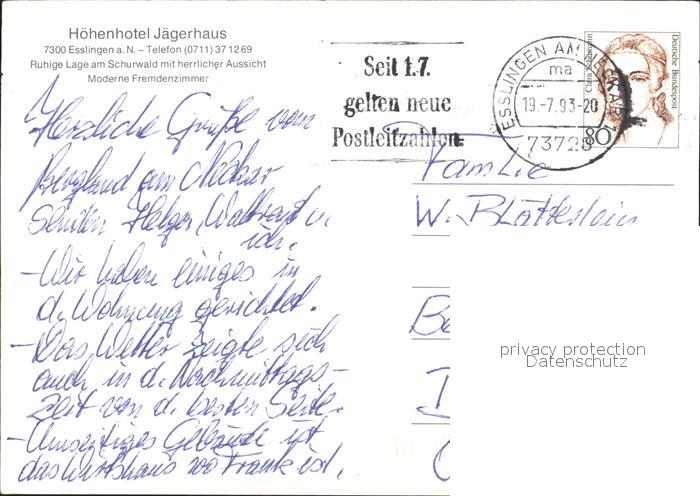 Höhenhotel Jägerhaus
7300 Esslingen a. N. – Telefon (0711) 371269
Ruhige Lage am Schurwald mit herrlicher Aussicht
Moderne Fremdenzimmer
Seit 1.7.
gelten neue
Postleitzahlen.
ESSLINGEN AM NECKAR
ma
19.-7.93-20
73728
Clara Schumann
Deutsche Bundespost
80
Herzliche Grüße vom
Bergland am Neckar
senden Helga, Waltraut u.
ich.
- Wir haben einiges in
d. Wohnung gerichtet.
- Das Wetter zeigte sich
auch in d. Nachmittags-
zeit von d. besten Seite.
- Umseitiges Gebäude ist
das Wirtshaus wo Frank ist.
Familie
W. Blätterlein
privacy protection
Datenschutz